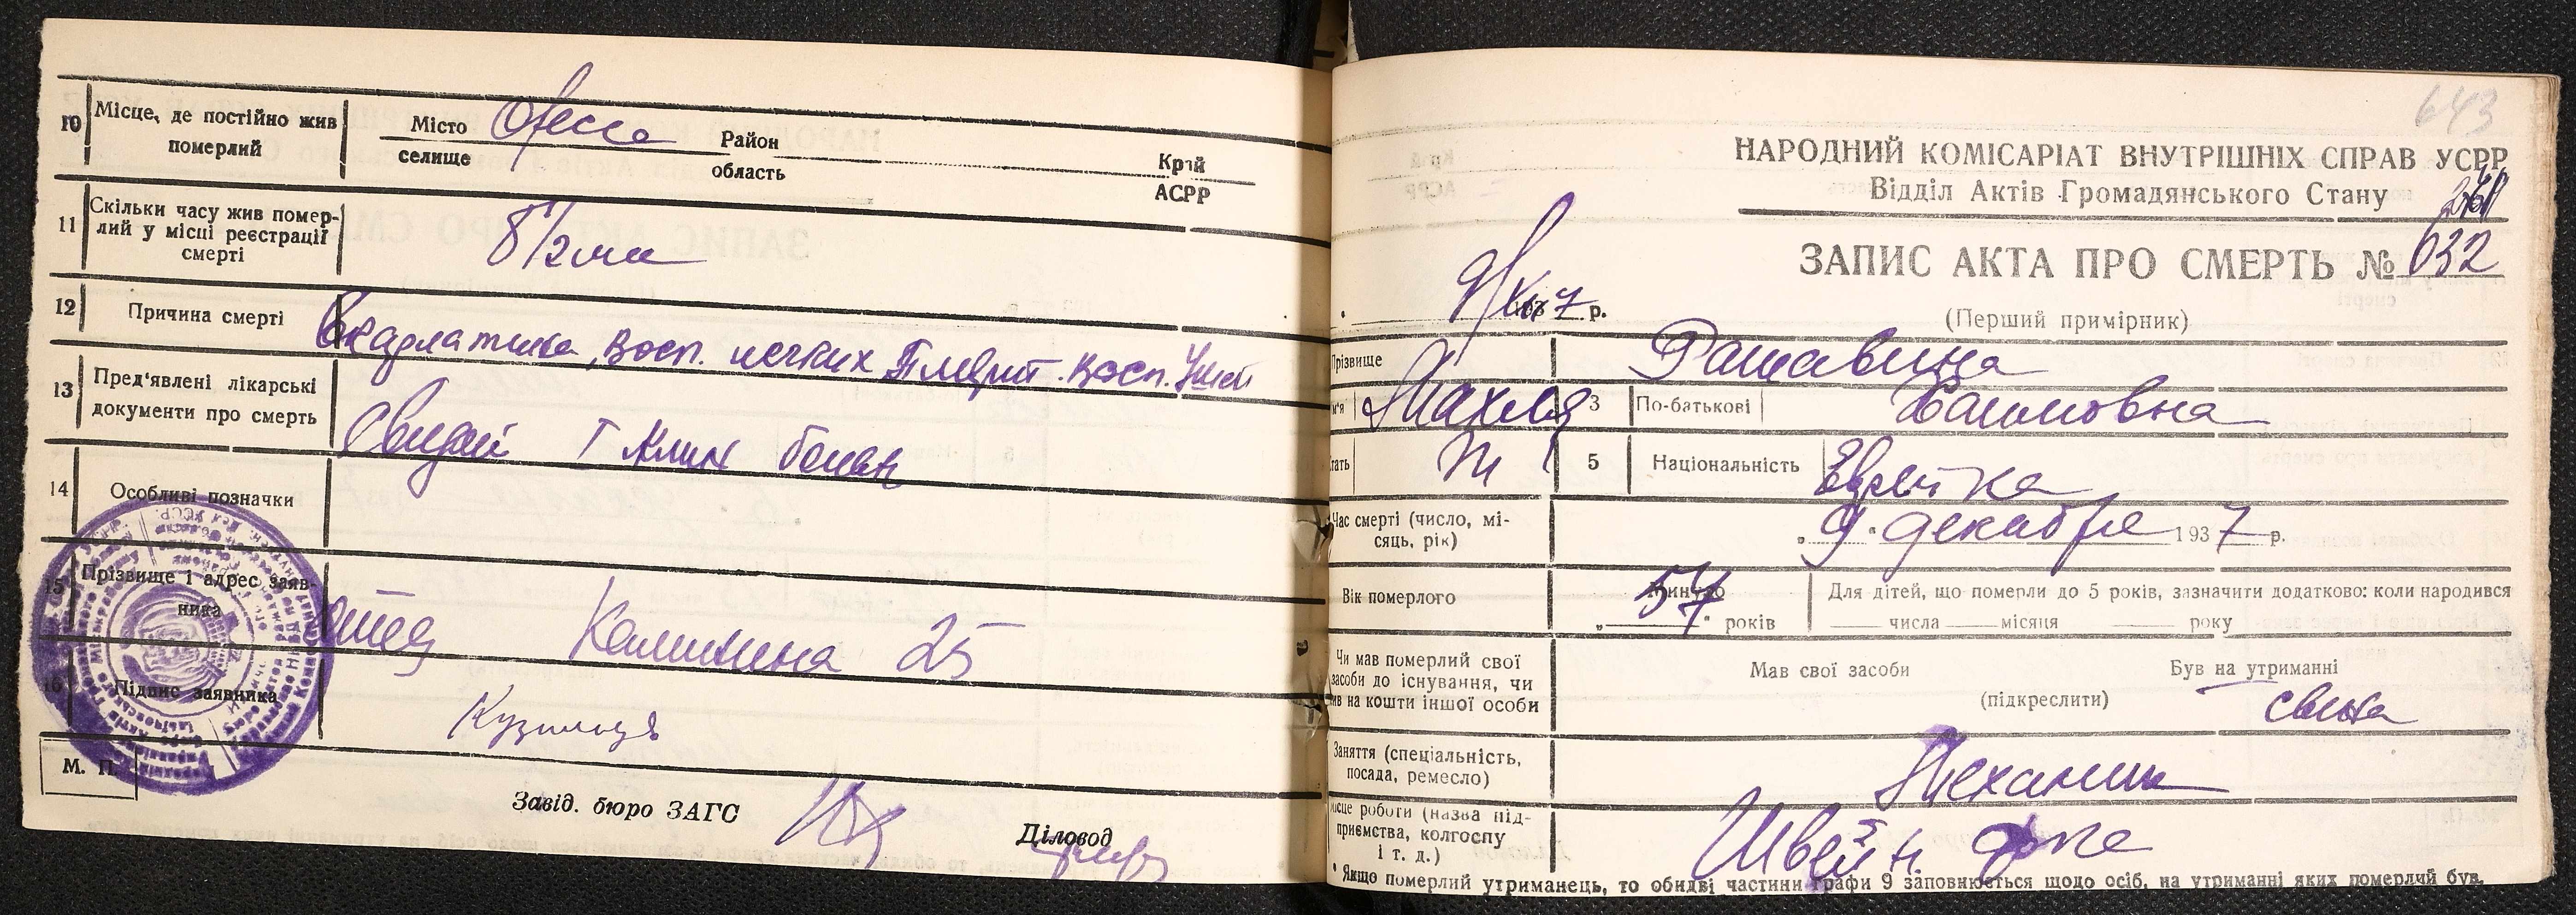 10 Місце, де постійно жив
померлий
Місто Одесса Район Край
селище область АСРР
11 Скільки часу жив помер-
лий у місці реєстрації
смерті
12 Причина смерті Скарлатина, восп. легких Плеврит. восп. Ушей
13 Пред'явлені лікарські
документи про смерть
I Клин больн
14 Особливі позначки
15 Прізвище і адрес заяв-
ника
отец Калинина 25
16 Підпис заявника
М. П.
Завід. бюро ЗАГС
Діловод
643
НАРОДНИЙ КОМІСАРІАТ ВНУТРІШНІХ СПРАВ УСРР
Відділ Актів Громадянського Стану
ЗАПИС АКТА ПРО СМЕРТЬ № 032
9/XII 1937 р.
(Перший примірник)
Прізвище
м'я 3 По-батькові Хаимовна
тать Ж 5 Національність Еврейка
Час смерті (число, мі-
сяць, рік)
„ 9 " декабря 1937 р.
Вік померлого
Минуло
„ " років
Для дітей, що померли до 5 років, зазначити додатково: коли народився
числа місяця року
Чи мав померлий свої
засоби до існування, чи
жив на кошти іншої особи
Мав свої засоби Був на утриманні
(підкреслити)
Заняття (спеціальність,
посада, ремесло)
Механик
Місце роботи (назва під-
приємства, колгоспу
і т. д.)
Швейн ф-ке
* Якщо померлий утриманець, то обидві частини графи 9 заповнюється щодо осіб, на утриманні яких померлий був.